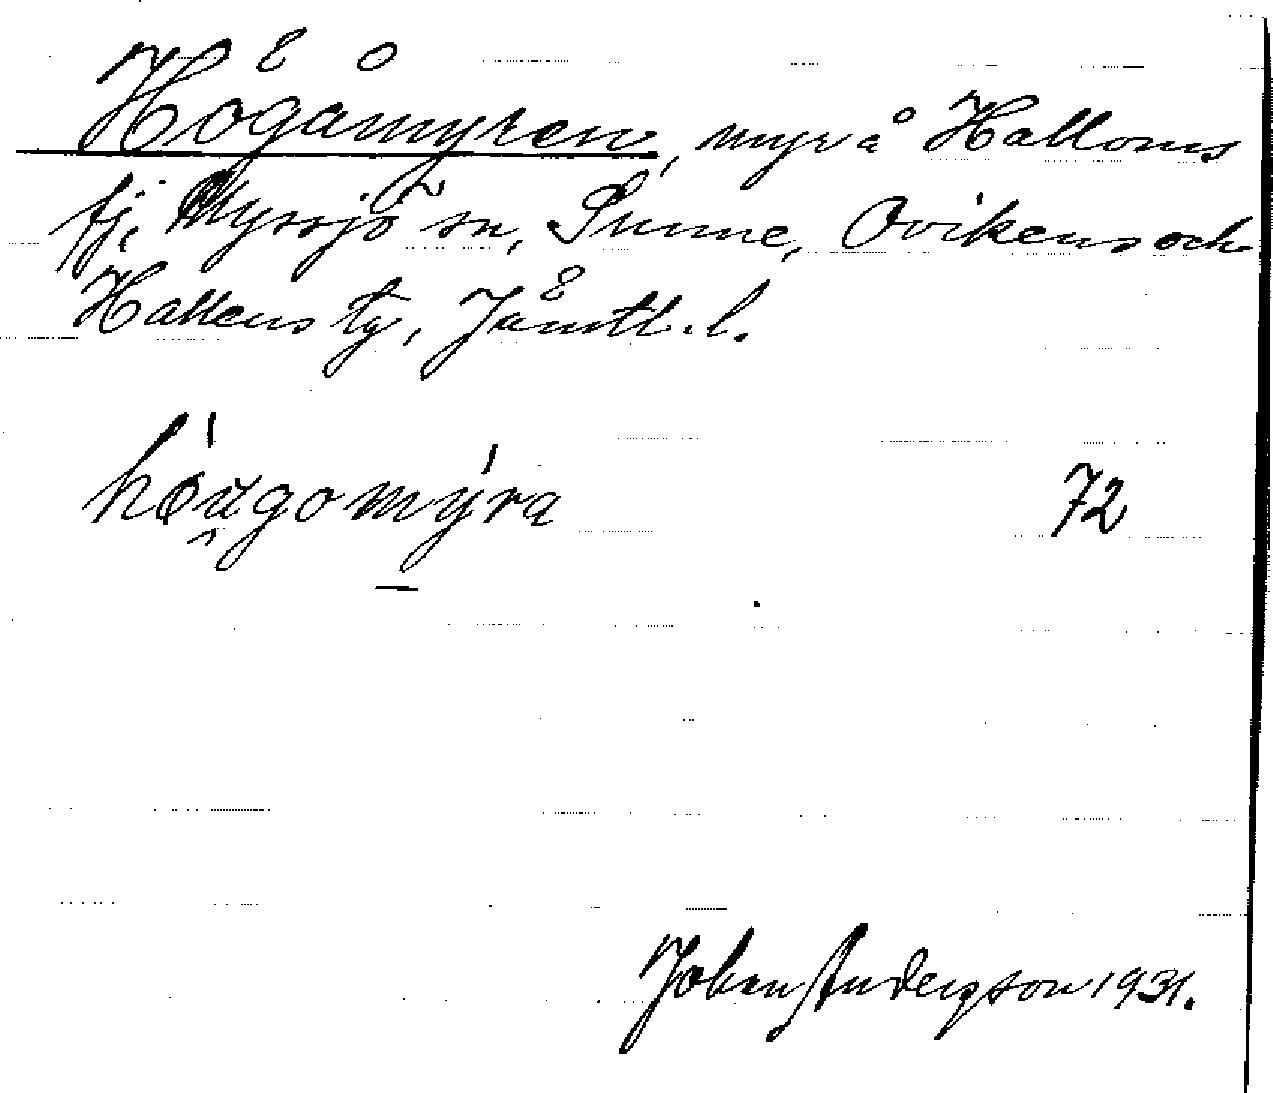 Högåmyren, myr å Halloms
fj. Myssjö sn, Sunne, Ovikens och
Hallens tg, Jämtl. l.
hó̤u̯gomýra 72
Johan Anderzson 1931.